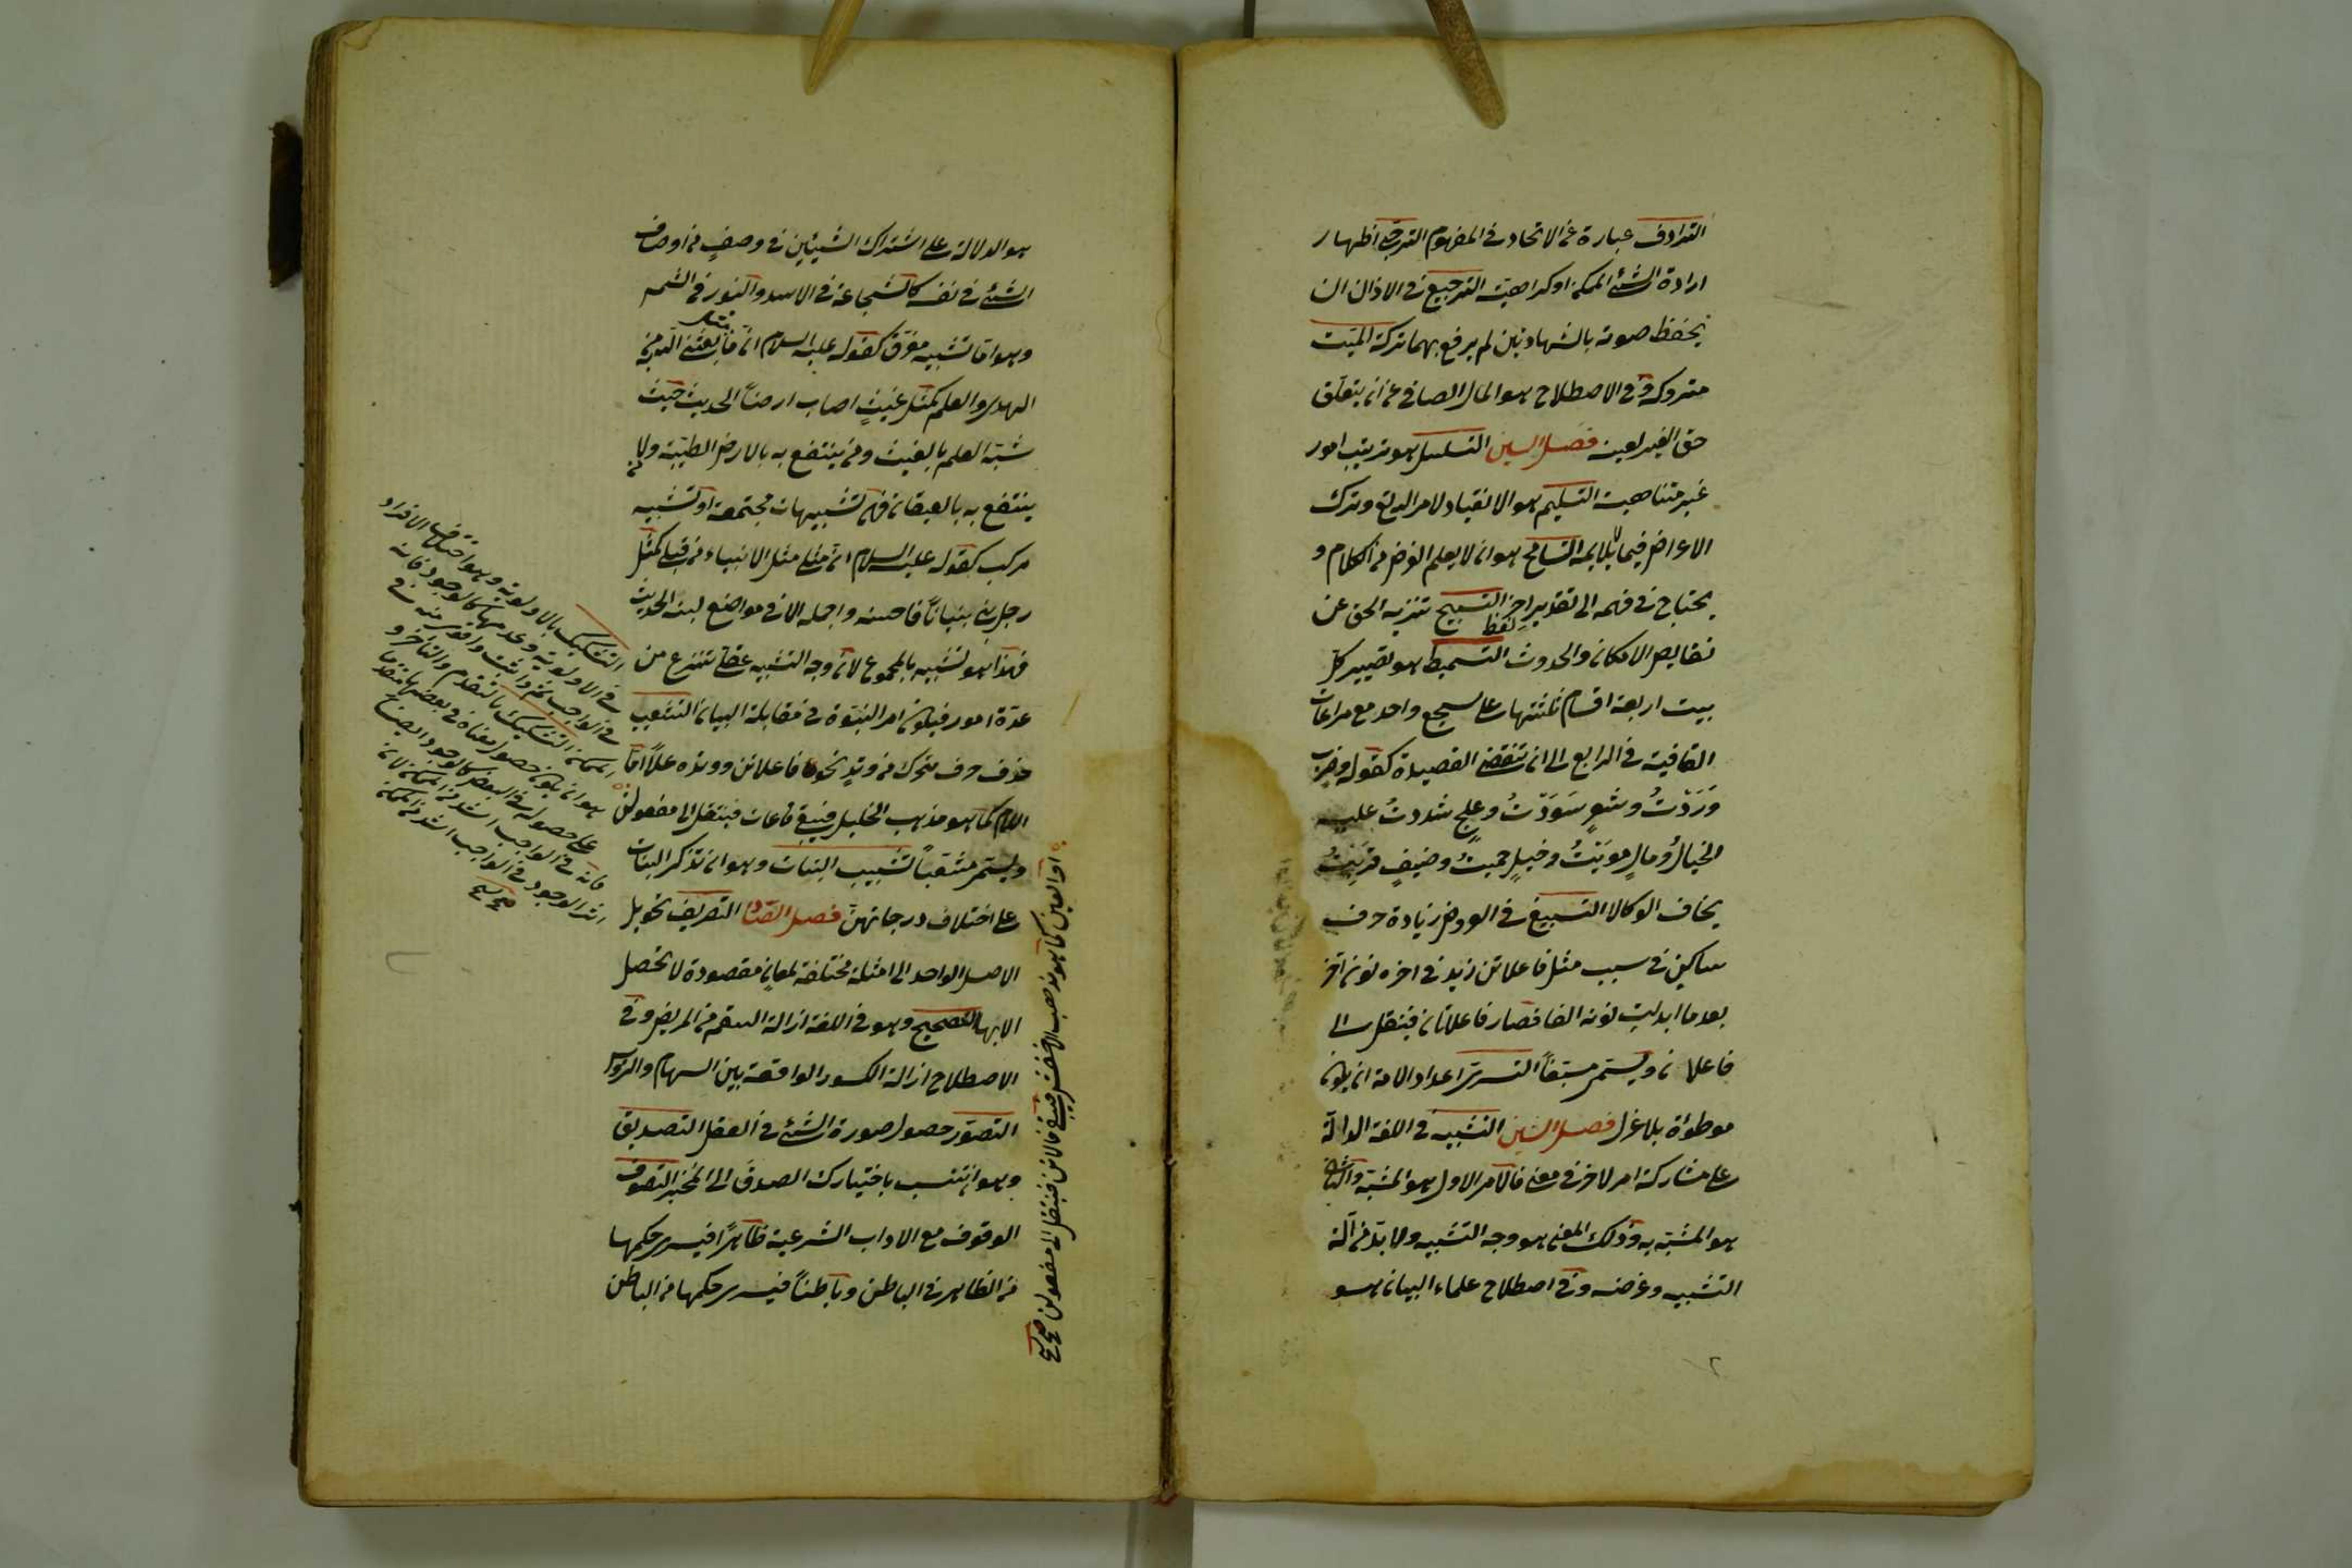 الترادف عبارة عن الاتحاد في المفهوم الترجي اظهار
ارادة الشئ الممكن او كراهيته الترجيع في الاذان ان
يخفض صوته بالشهادتين ثم يرفع بهما تركة الميت
متروكه وفي الاصطلاح هو المال الصافي عن ان يتعلق
حق الغير بعينه فصل السين التسلسل هو ترتيب امور
غير متناهية التسليم هو الانقياد لامر الله تع وترك
الاعراض فيما لا يلايمه التسامح هو ان لا يعلم الغرض من الكلام و
يحتاج في فهمه الى تقدير لفظ اخر التسبيح تنزيه الحق عن
نقايص الامكان والحدوث التسميط هو تصيير كل
بيت اربعة اقسام ثلثتها على سجع واحد مع مراعات
القافية في الرابع الى ان تنقضي القصيدة كقوله وحرب
وَرَدْتُ وثغرٍ سَدَدْتُ وعلجٍ شددتُ عليه
الحبالُ ومالٍ حويتُ وخيلٍ حميتُ وضيفٍ قريتُ
يخاف الوكالا التسبيغ في العروض زيادة حرف
ساكن في سبب مثل فاعلاتن زيد في اخره نون اخر
بعد ما ابدلت نونه الفا فصار فاعلاتان فينقل الى
فاعلان ويسمى مسبغاً التسري اعداد الامة ان يكون
موطوأة بلا عزل فصل الشين التشبيه في اللغة الدلالة
على مشاركة امر لاخر في معنى فالامر الاول هو المشبه والثاني
هو المشبه به وذلك المعنى هو وجه التشبيه ولا بد من آلة
التشبيه وغرضه وفي اصطلاح علماء البيان هو
هو الدلالة على اشتراك الشيئين في وصفٍ من اوصاف
الشئ في نفسه كالشجاعة في الاسد والنور في الشمس
وهو اما تشبيه مفرق كقوله عليه السلام ان مثل ما بعثني الله به من
الهدى والعلم كمثل غيثٍ اصاب ارضاً الحديث حيث
شبه العلم بالغيث ومن ينتفع به بالارض الطيبة ومن لا
ينتفع به بالقيعان فهى تشبيهات مجتمعة او تشبيه
مركب كقوله عليه السلام ان مثلي مثل الانبياء من قبلي كمثل
رجل بنى بنياناً فاحسنه واجمله الا في مواضع لبنة الحديث
فهذا هو تشبيه بالمجموع لان وجه التشبيه عقلي منتزع من
عدة امور فيكون امر النبوة في مقابلة البيان التشعيب
حذف حرف متحرك من وتد نحو فاعلاتن ووتده علا اما
اللام كما هو مذهب الخليل فيبقى فاعاتن فينقل الى مفعولن
ويسمى مشعباً تشبيب البنات وهو ان تذكر البنات
على اختلاف درجاتهن فصل الصاد التصريف تحويل
الاصل الواحد الى امثلة مختلفة لمعانٍ مقصودة لا تحصل
الا بها التصحيح وهو في اللغة ازالة السقم من المريض وفي
الاصطلاح ازالة الكسور الواقعة بين السهام والرؤس
التصور حصول صورة الشئ في العقل التصديق
وهو ان تنسب باختيارك الصدق الى المخبر التصوف
الوقوف مع الاداب الشرعية ظاهراً فيسرى حكمها
من الظاهر في الباطن وباطناً فيسرى حكمها من الباطن
او العين كما هو مذهب الاخفش فيبقى فالاتن فينقل الى مفعولن صح
التشكيك بالاولوية وهو اختلاف الافراد
في الاولوية وعدمها كالوجود فانه
في الواجب اتم واثبت واقوى منه في
الممكن التشكيك بالتقدم والتاخر و
هو ان يكون حصول معناه في بعضها متقدما
على حصوله في البعض كالوجود ايضا
فانه في الواجب اشد من الممكن لان
اثر الوجود في الواجب اشد من الممكن
صح